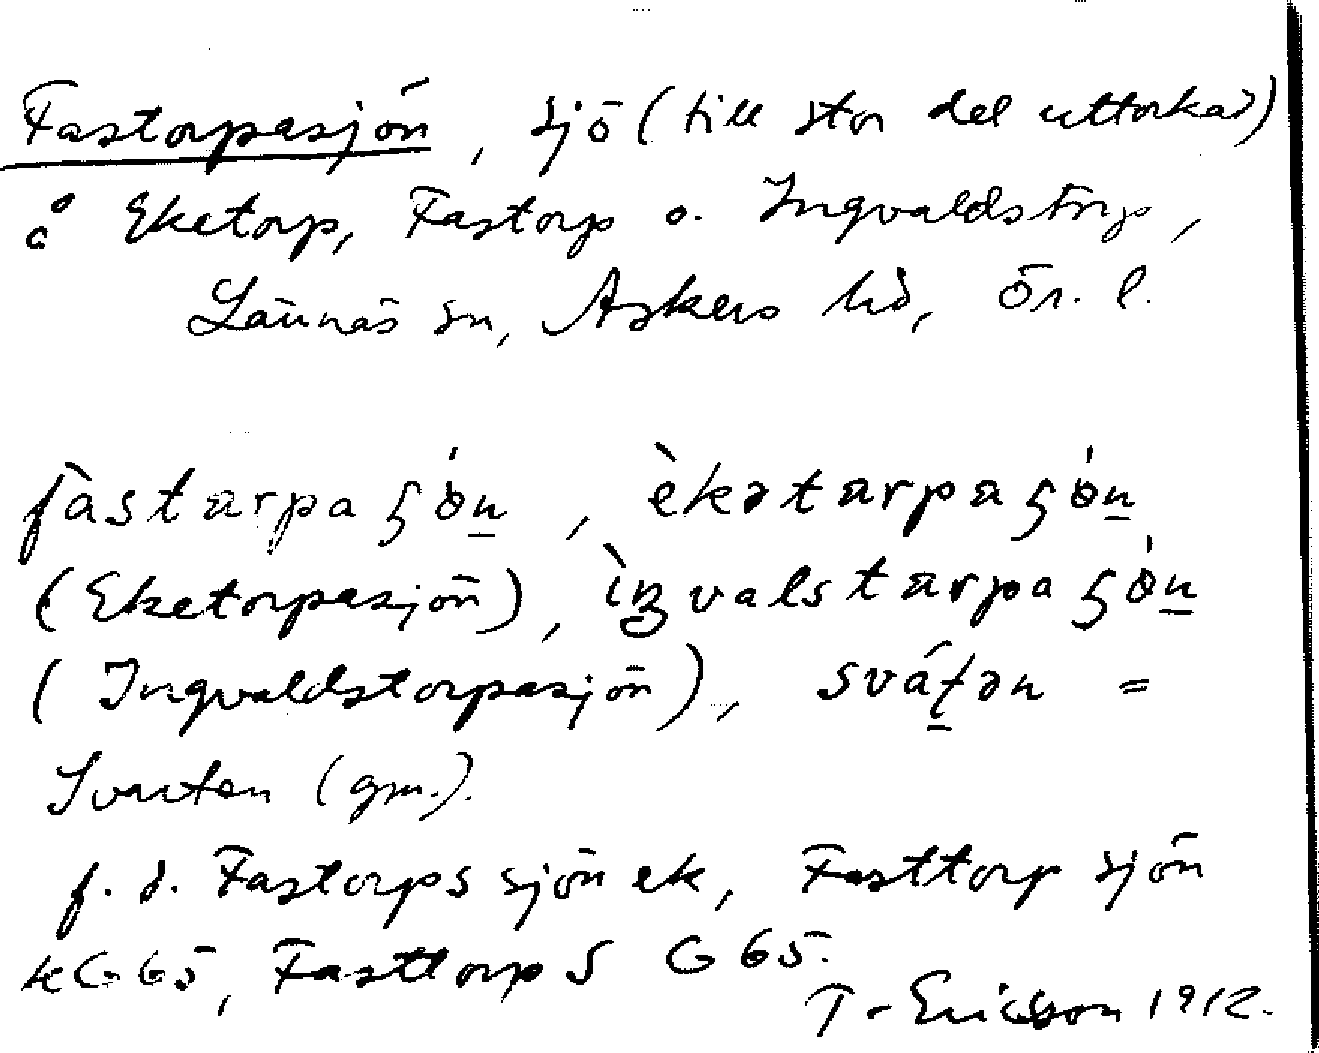 Fastorpasjön, sjö (till stor del uttorkad)
å Eketorp, Fastorp o. Ingvaldstorp,
Lännäs sn, Askers hd, Ör. l.
fàstarpaʂö́n, èkətarpaʂö́n
(Eketorpasjön), ìŋvalstarpaʂö́n
(Ingvaldstorpasjön), sváʈən =
Svarten (gm.).
f. d. Fastorps sjön ek, Fasttorp sjön
kG65, Fasttorp S G65.
T. Ericsson 1912.